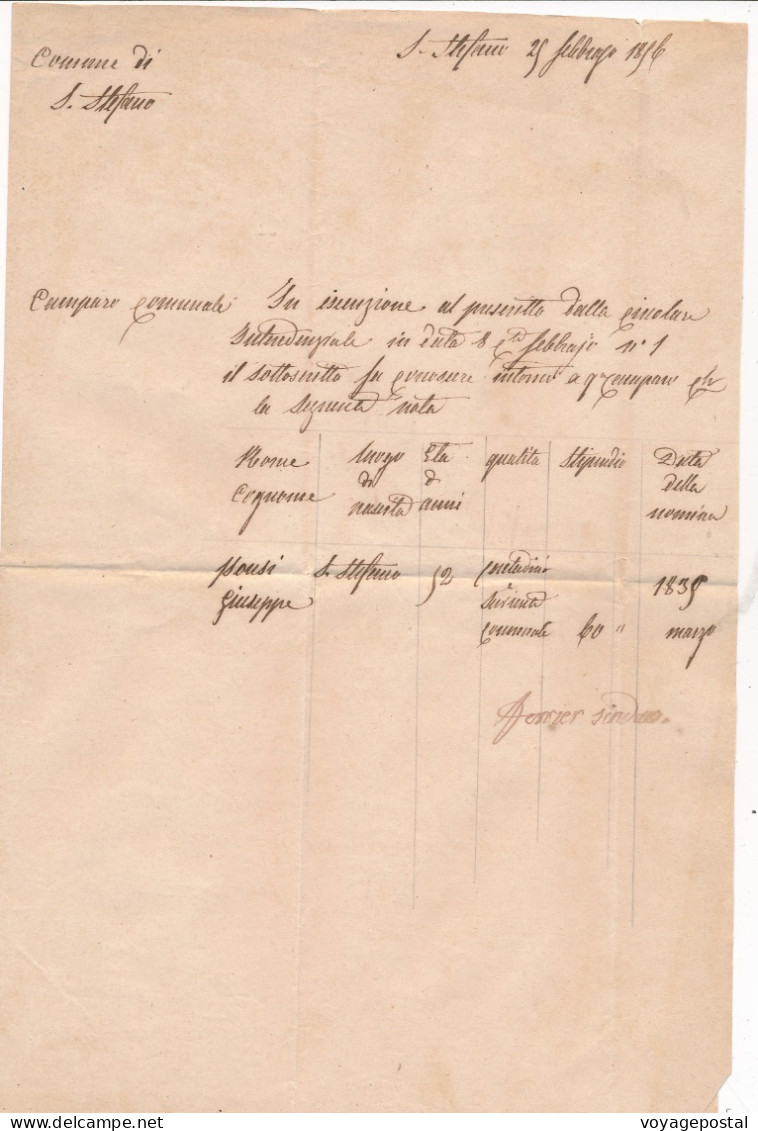 Comune di
S. Stefano
S. Stefano 25 febbrajo 1856
Camparo comunale
In esecuzione al prescritto dalla circolare
Intendenziale in data 8 febbrajo n° 1
il sottoscritto fa conoscere intorno a camparo
la seguente nota
Nome
Cognome
luogo
di
nascita
Età
di
anni
qualita
stipendio
Data
della
nomina
Ponsi
Giuseppe
S. Stefano
52
contadino
e
comunale
60 "
1835
marzo
sindaco.
voyagepostal